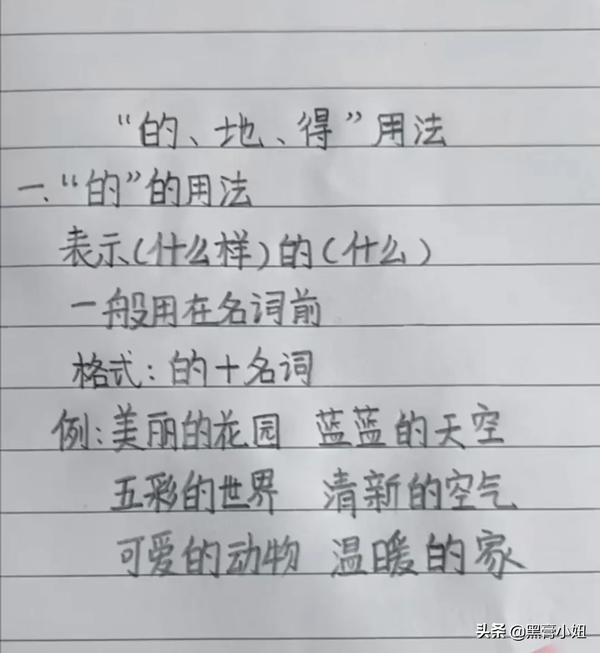 “的、地、得”用法
一、“的”的用法
表示(什么样)的(什么)
一般用在名词前
格式：的+名词
例：美丽的花园 蓝蓝的天空
五彩的世界 清新的空气
可爱的动物 温暖的家
头条 @黑膏小姐